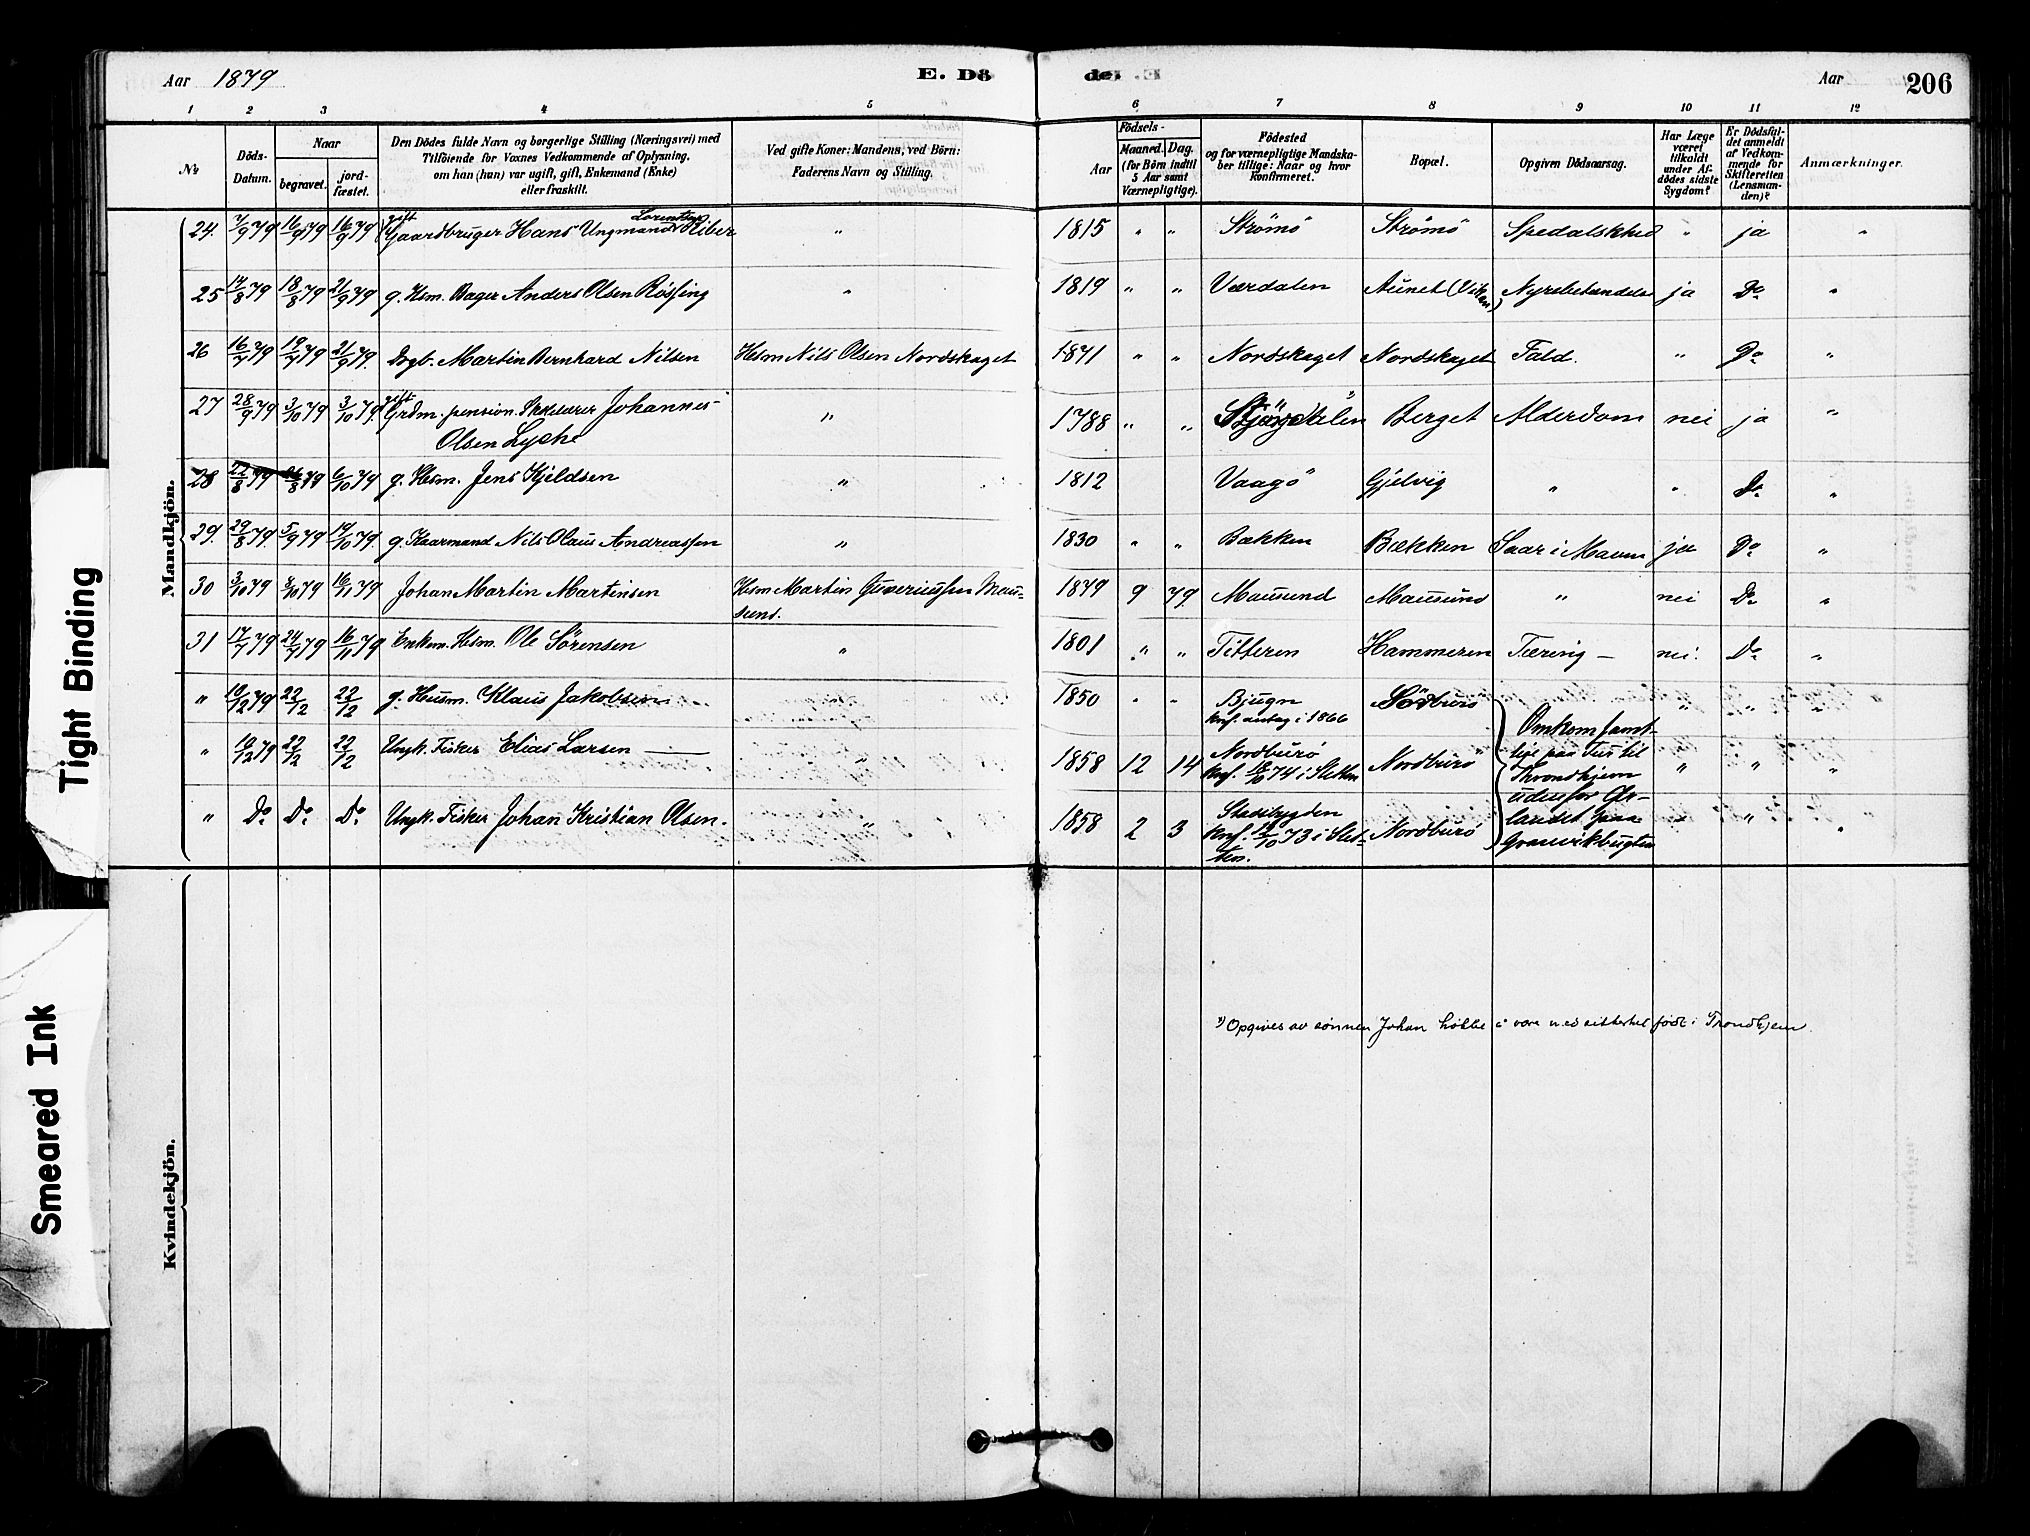 Aar 1879
E. Dö
de
Aar
206
1 2 3 4 5 6 7 8 9 10 11 12
No
Döds-Datum.
Naar
begravet.
jord-fæstet.
Den Dödes fulde Navn og borgerlige Stilling (Næringsvei) med
Tilföiende for Voxnes Vedkommende af Oplysning,
om han (hun) var ugift, gift, Enkemand (Enke)
eller fraskilt.
Ved gifte Koner: Mandens, ved Börn:
Faderens Navn og Stilling.
Födsels-
Aar
Maaned. Dag.
(for Börn indtil
5 Aar samt
Værnepligtige).
Födested
og for værnepligtige Mandska-
ber tillige: Naar og hvor
konfirmeret.
Bopæl.
Opgiven Dödsaarsag.
Har Læge
været
tilkaldt
under Af-
dödes sidste
Sygdom?
Er Dödsfal-
det anmeldt
af Vedkom-
mende for
Skifteretten
(Lensman-
den)?
Anmærkninger.
Mandkjön.
24. 7/9 79 16/9 79 16/9 79 gift Gaardbruger Hans Ungmand Lorentsen Riber " 1815 " " Strömö Strömö Spedalskhed " ja "
25 14/8 79 18/8 79 21/9 79 g. Hsm. Bager Anders Olsen Rössing " 1819 " " Værdalen Aunet (Viken) Nyrebetændelse ja Do "
26 16/7 79 19/7 79 21/9 79. Dygt. Martin Bernhard Nilsen Husm Nils Olsen Nordskaget 1871 " " Nordskaget Nordskaget Fald. " Do "
27 28/9 79 3/10 79 3/10 79. gift Grdm. pension. Johannes
Olsen Lyshe " 1788 " " Stjørdalen Berget Alderdom nei ja "
28 22/8 79 26/8 79 6/10 79 g. Hsm. Jens Kjeldsen " 1812 Vaagö Gjelvig " " Do "
29. 29/8 79. 5/9 79 19/10 79. g. Kaarmand Nils Olaus Andreassen " 1830 " " Bækken Bækken Saar i Maven ja Do "
30 3/10 79 8/10 79 16/11 79 Johan Martin Martinsen Hsm Martin Guveriussen Mau-
sund. 1879 9 79. Mausund Mausund " nei Do "
31 17/7 79 24/7 79 16/11 79 Enkem. Hsm. Ole Sörensen " 1801 " " Titteren Hammeren Tæring — nei. Do "
" 19/12 79 22/12 22/12 g. Husm. Klaus Jakobsen 1850 " " Bjugn
knf. antag i 1866 Sörburö " " "
" 19/12 79 22/12 22/12 Ungk. Fisker Elias Larsen — " 1858 12 14 Nordburö
knf. 18/10 74 i Sletten Nordburö " " "
" Do Do Do Ungk. Fisker Johan Kristian Olsen. " 1858 2 3 Stadsbygden
knf. 12/10 73 i Slet-
ten. Nordburö " " "
Omkom samt-
lige paa Tur til
Throndhjem
udenfor Ør-
landet paa
Grandvikbugten
Kvindekjön.
x) Opgives av sønnen Johan Lökke å være med sikkerhet født i Trondhjem.
Tight Binding
Smeared Ink